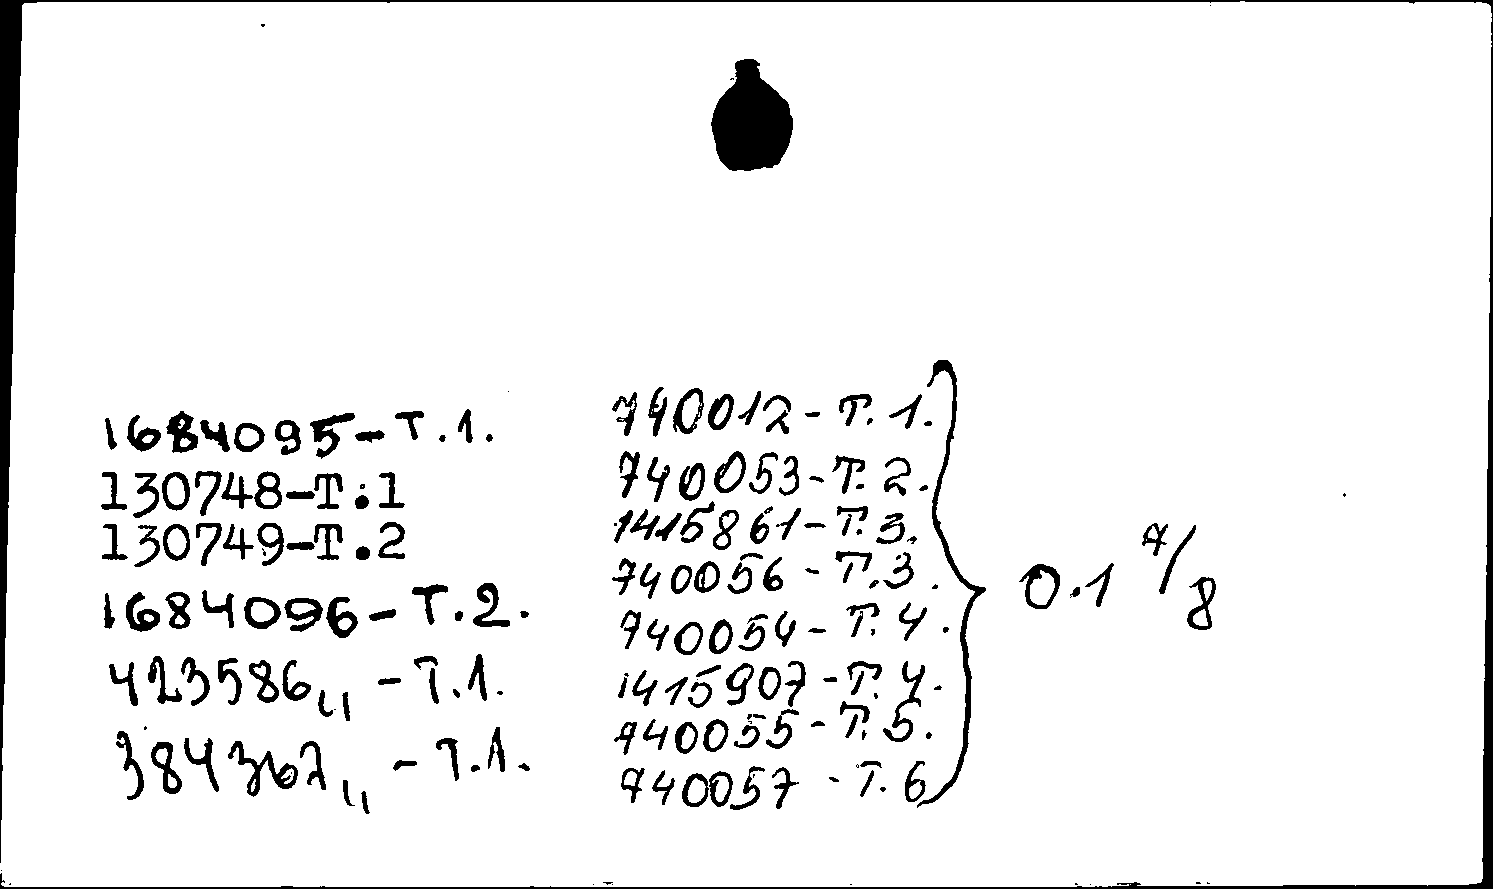 1684095-Т.1.
130748-Т.1
130749-Т.2
1684096-Т.2.
423586ц -Т.1.
384367ц -Т.1.
740012-Т.1.
740053-Т.2.
1415861-Т.3.
740056-Т.3.
740054-Т.4.
1415907-Т.4.
740055-Т.5.
740057-Т.6
0.1 7/8